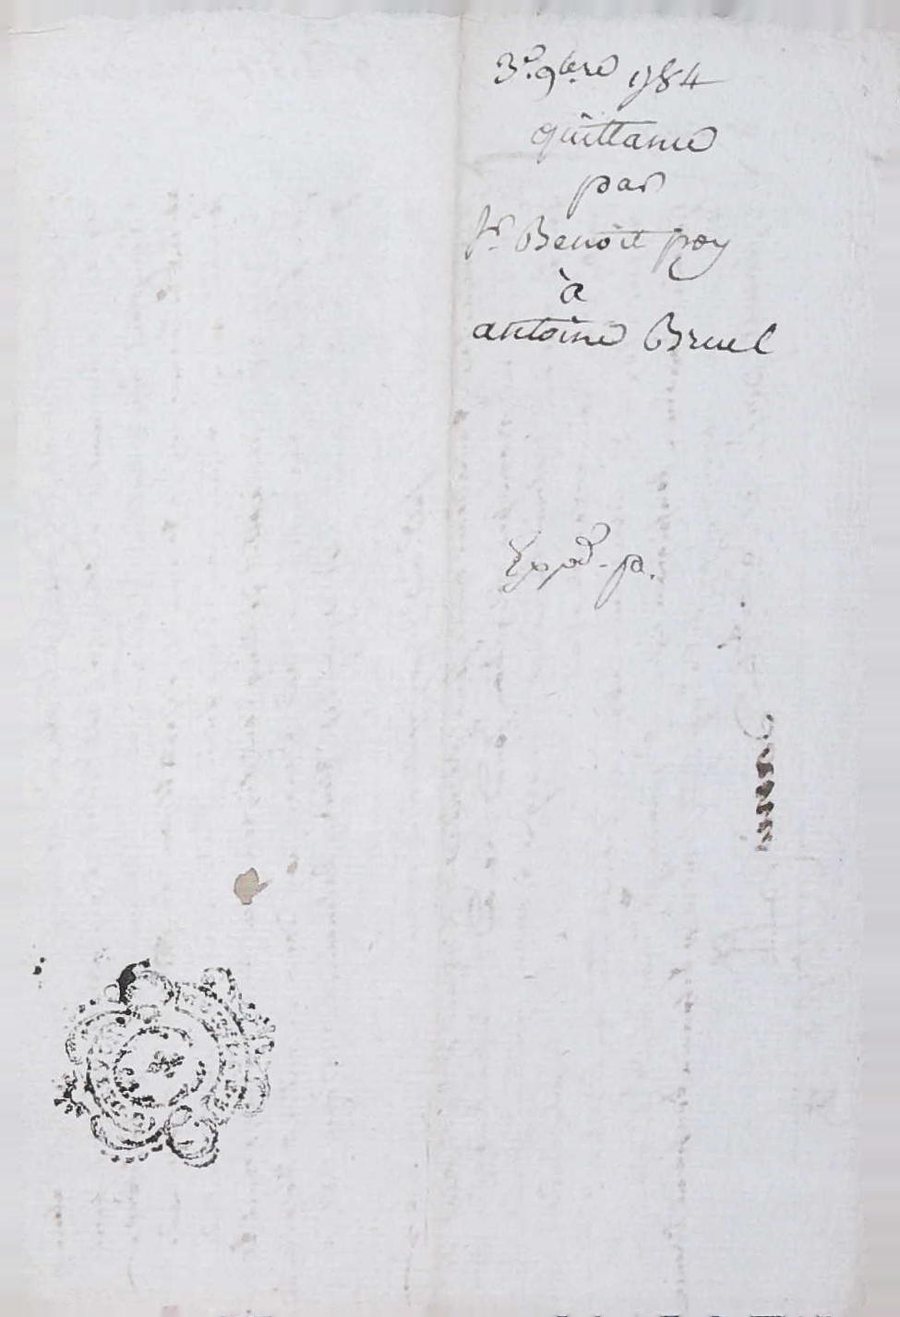 3e. 9bre 1784
quittance
par
Sr. Benoit poy
à
antoine Bruel
Exppd. pa.